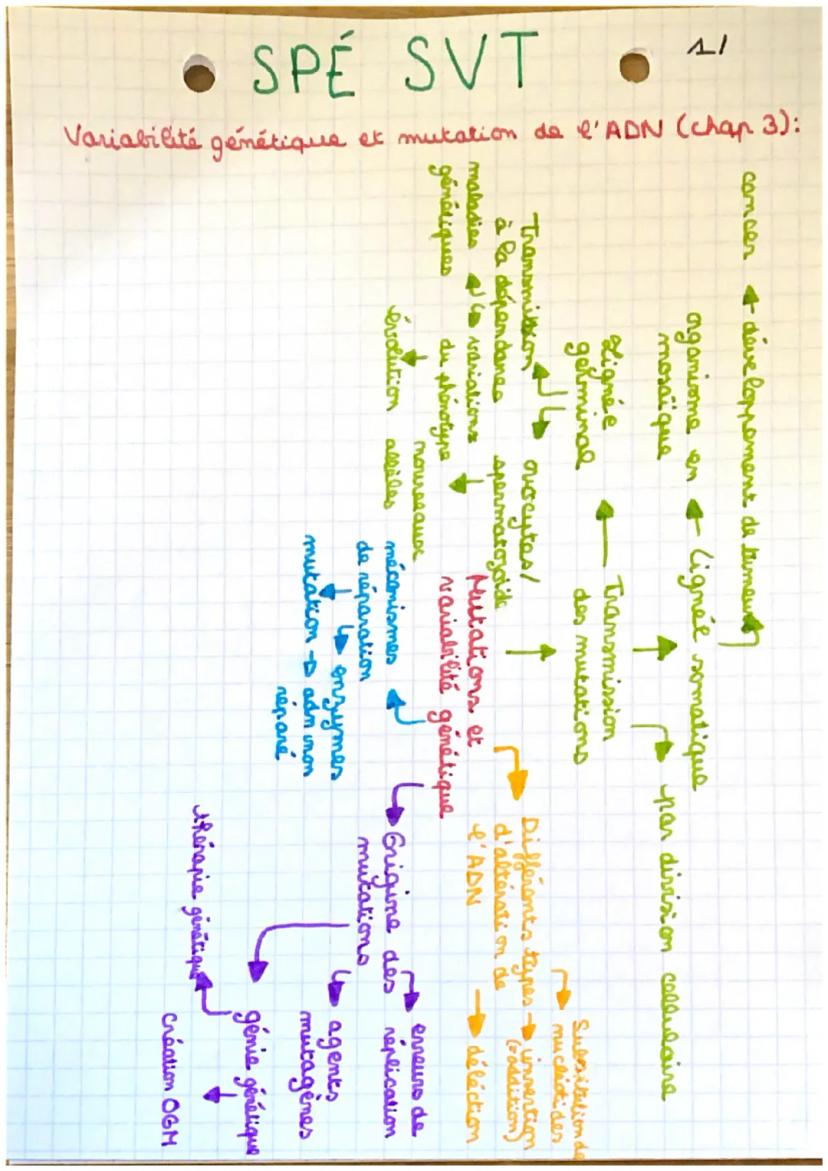 SPÉ SVT
1/
Variabilité génétique et mutation de l'ADN (chap 3):
cancer ← développement de tumeur
organisme en
mosaïque
← Lignée somatique
par division cellulaire
Lignée
germinal
←
Transmission
des mutations
Transmission
à la dépendance
ovocytes/
spermatozoïde
maladies
génétiques
variations
du phénotype
nouveaux
allèles
évolution
Mutations et
variabilité génétique
mécanismes
de réparation
enzymes
mutation → adn non
réparé
Différents types
d'altération de
l'ADN
Substitution de
nucléotides
→ insertion
(=addition)
→ déléction
Origine des
mutations
erreurs de
réplication
agents
mutagènes
génie génétique
thérapie génétique
création OGM